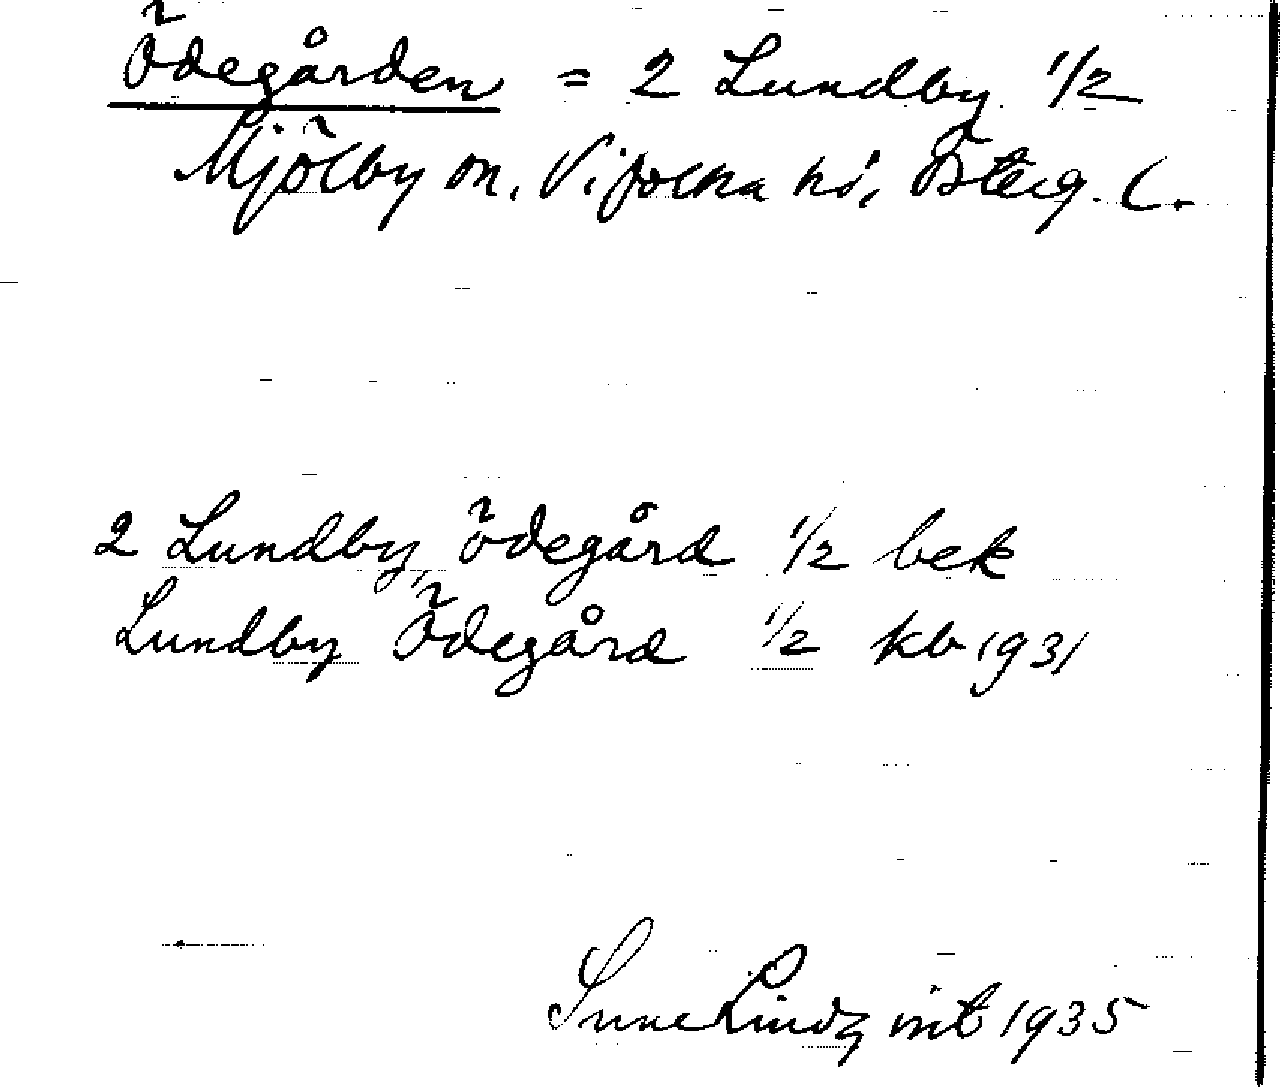 Ödegården = 2 Lundby 1/2
Mjölby sn, Vifolka hd, Österg. L.
2 Lundby, Ödegård 1/2 bek
Lundby Ödegård 1/2 kb 1931
Sune Lindq 1935